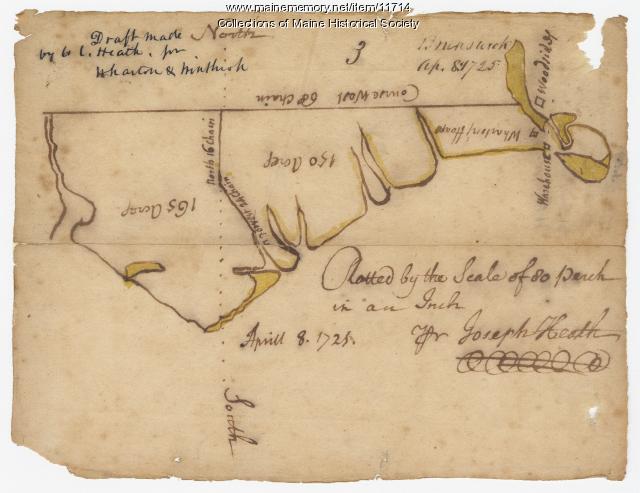 www.mainememory.net/item/11714
Collections of Maine Historical Society
North
Draft made
by Col. Heath. for
Wharton & Winthrop
3
Brunswick
Ap. 8. 1725.
Course West 68 Chain
Woodside
Wharton's House
Warehouse
North 16 Chain
150 Acres
165 Acres
Plotted by the Scale of 80 perch
in an Inch
Aprill 8. 1725.
Joseph Heath
South